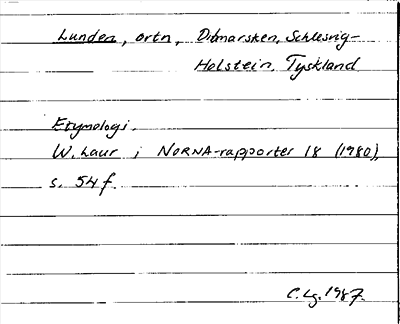 Lunden, ortn, Ditmarsken, Schleswig-
Holstein, Tyskland
Etymologi.
W. Laur i NORNA-rapporter 18 (1980),
s. 54 f.
C. Lg. 1987.